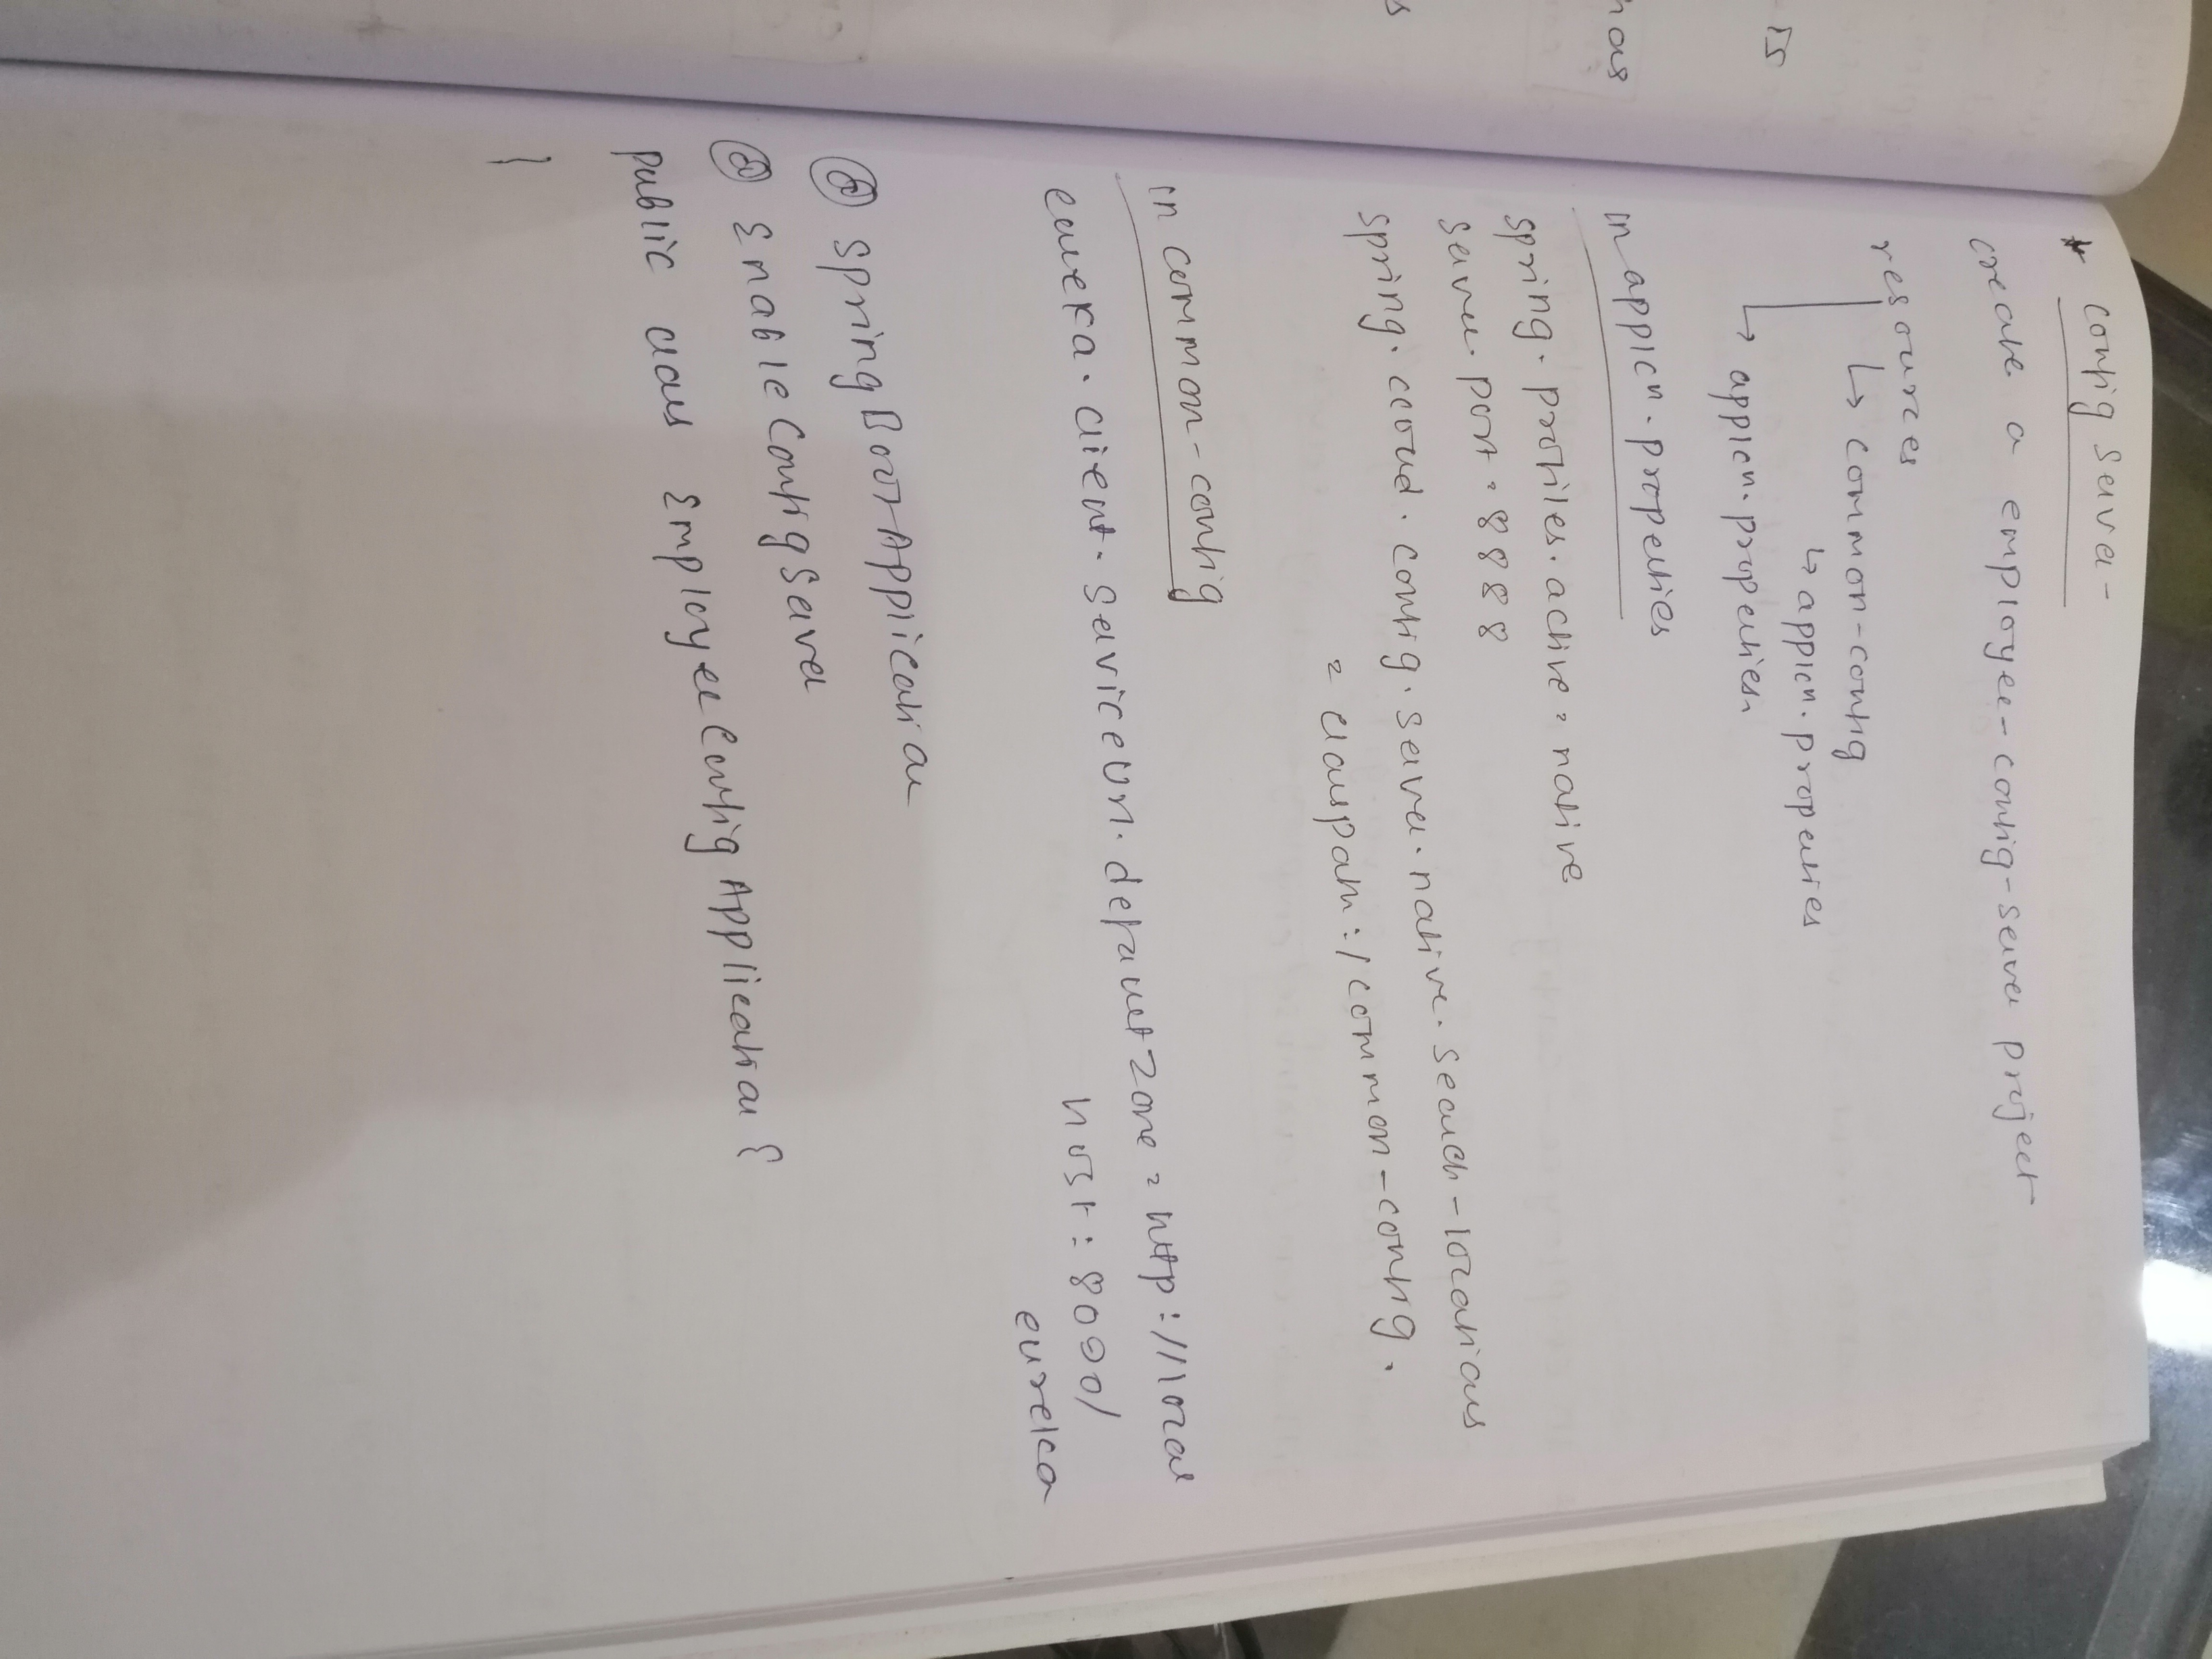 is
has
s
* Config Server -
create a employee-config-server project
resources
↳ common-config
↳ applicn.properties
↳ applicn.properties
in applicn.properties
spring.profiles.active = native
server.port = 8888
spring.cloud.config.server.native.search-locations
= classpath:/common-config.
in common-config
eureka.client.serviceUrl.defaultZone = http://local
host:8090/
eureka
@ SpringBootApplication
@ EnableConfigServer
public class EmployeeConfigApplication {
}